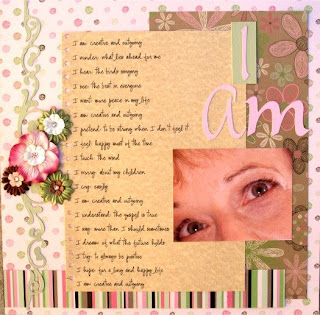 I am creative and outgoing
I wonder what lies ahead for me
I hear the birds singing
I see the best in everyone
I want more peace in my life
I am creative and outgoing
I pretend to be strong when I don't feel it
I feel happy most of the time
I touch the wind
I worry about my children
I cry easily
I am creative and outgoing
I understand the gospel is true
I say more than I should sometimes
I dream of what the future holds
I try to always be positive
I hope for a long and happy life
I am creative and outgoing
I
Am